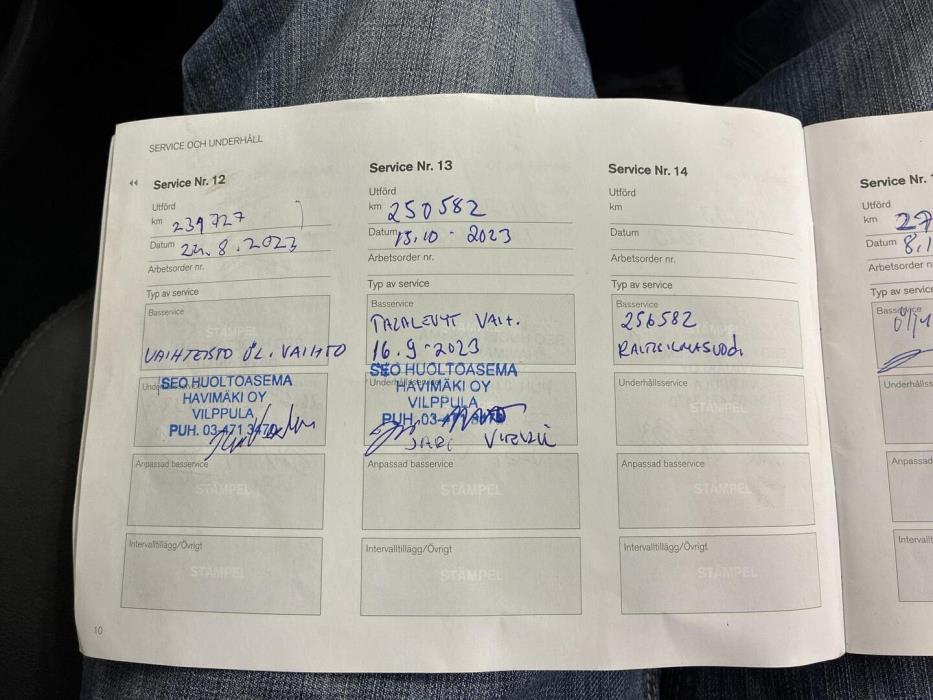 SERVICE OCH UNDERHÅLL
Service Nr. 12
Utförd
km 239727
Datum 22.8.2023
Arbetsorder nr.
Typ av service
Basservice
STÄMPEL
VAIHTEISTO ÖL. VAIHTO
SEO HUOLTOASEMA
HAVIMÄKI OY
VILPPULA
PUH. 03-471 3470
Anpassad basservice
STÄMPEL
Intervalltillägg/Övrigt
STÄMPEL
10
Service Nr. 13
Utförd
km 250582
Datum 13.10-2023
Arbetsorder nr.
Typ av service
Basservice
TAZALEVYT VAIH.
16.9-2023
SEO HUOLTOASEMA
Underhållsservice
HAVIMÄKI OY
VILPPULA
PUH. 03-471
JARI
Anpassad basservice
STÄMPEL
Intervalltillägg/Övrigt
STÄMPEL
Service Nr. 14
Utförd
km
Datum
Arbetsorder nr.
Typ av service
Basservice
256582
RAITISILMASUOD.
Underhållsservice
STÄMPEL
Anpassad basservice
STÄMPEL
Intervalltillägg/Övrigt
STÄMPEL
Service Nr.
Utförd
km 27
Datum 8.1
Arbetsorder n
Typ av service
Basservice
Underhållss
Anpassad
Intervallt